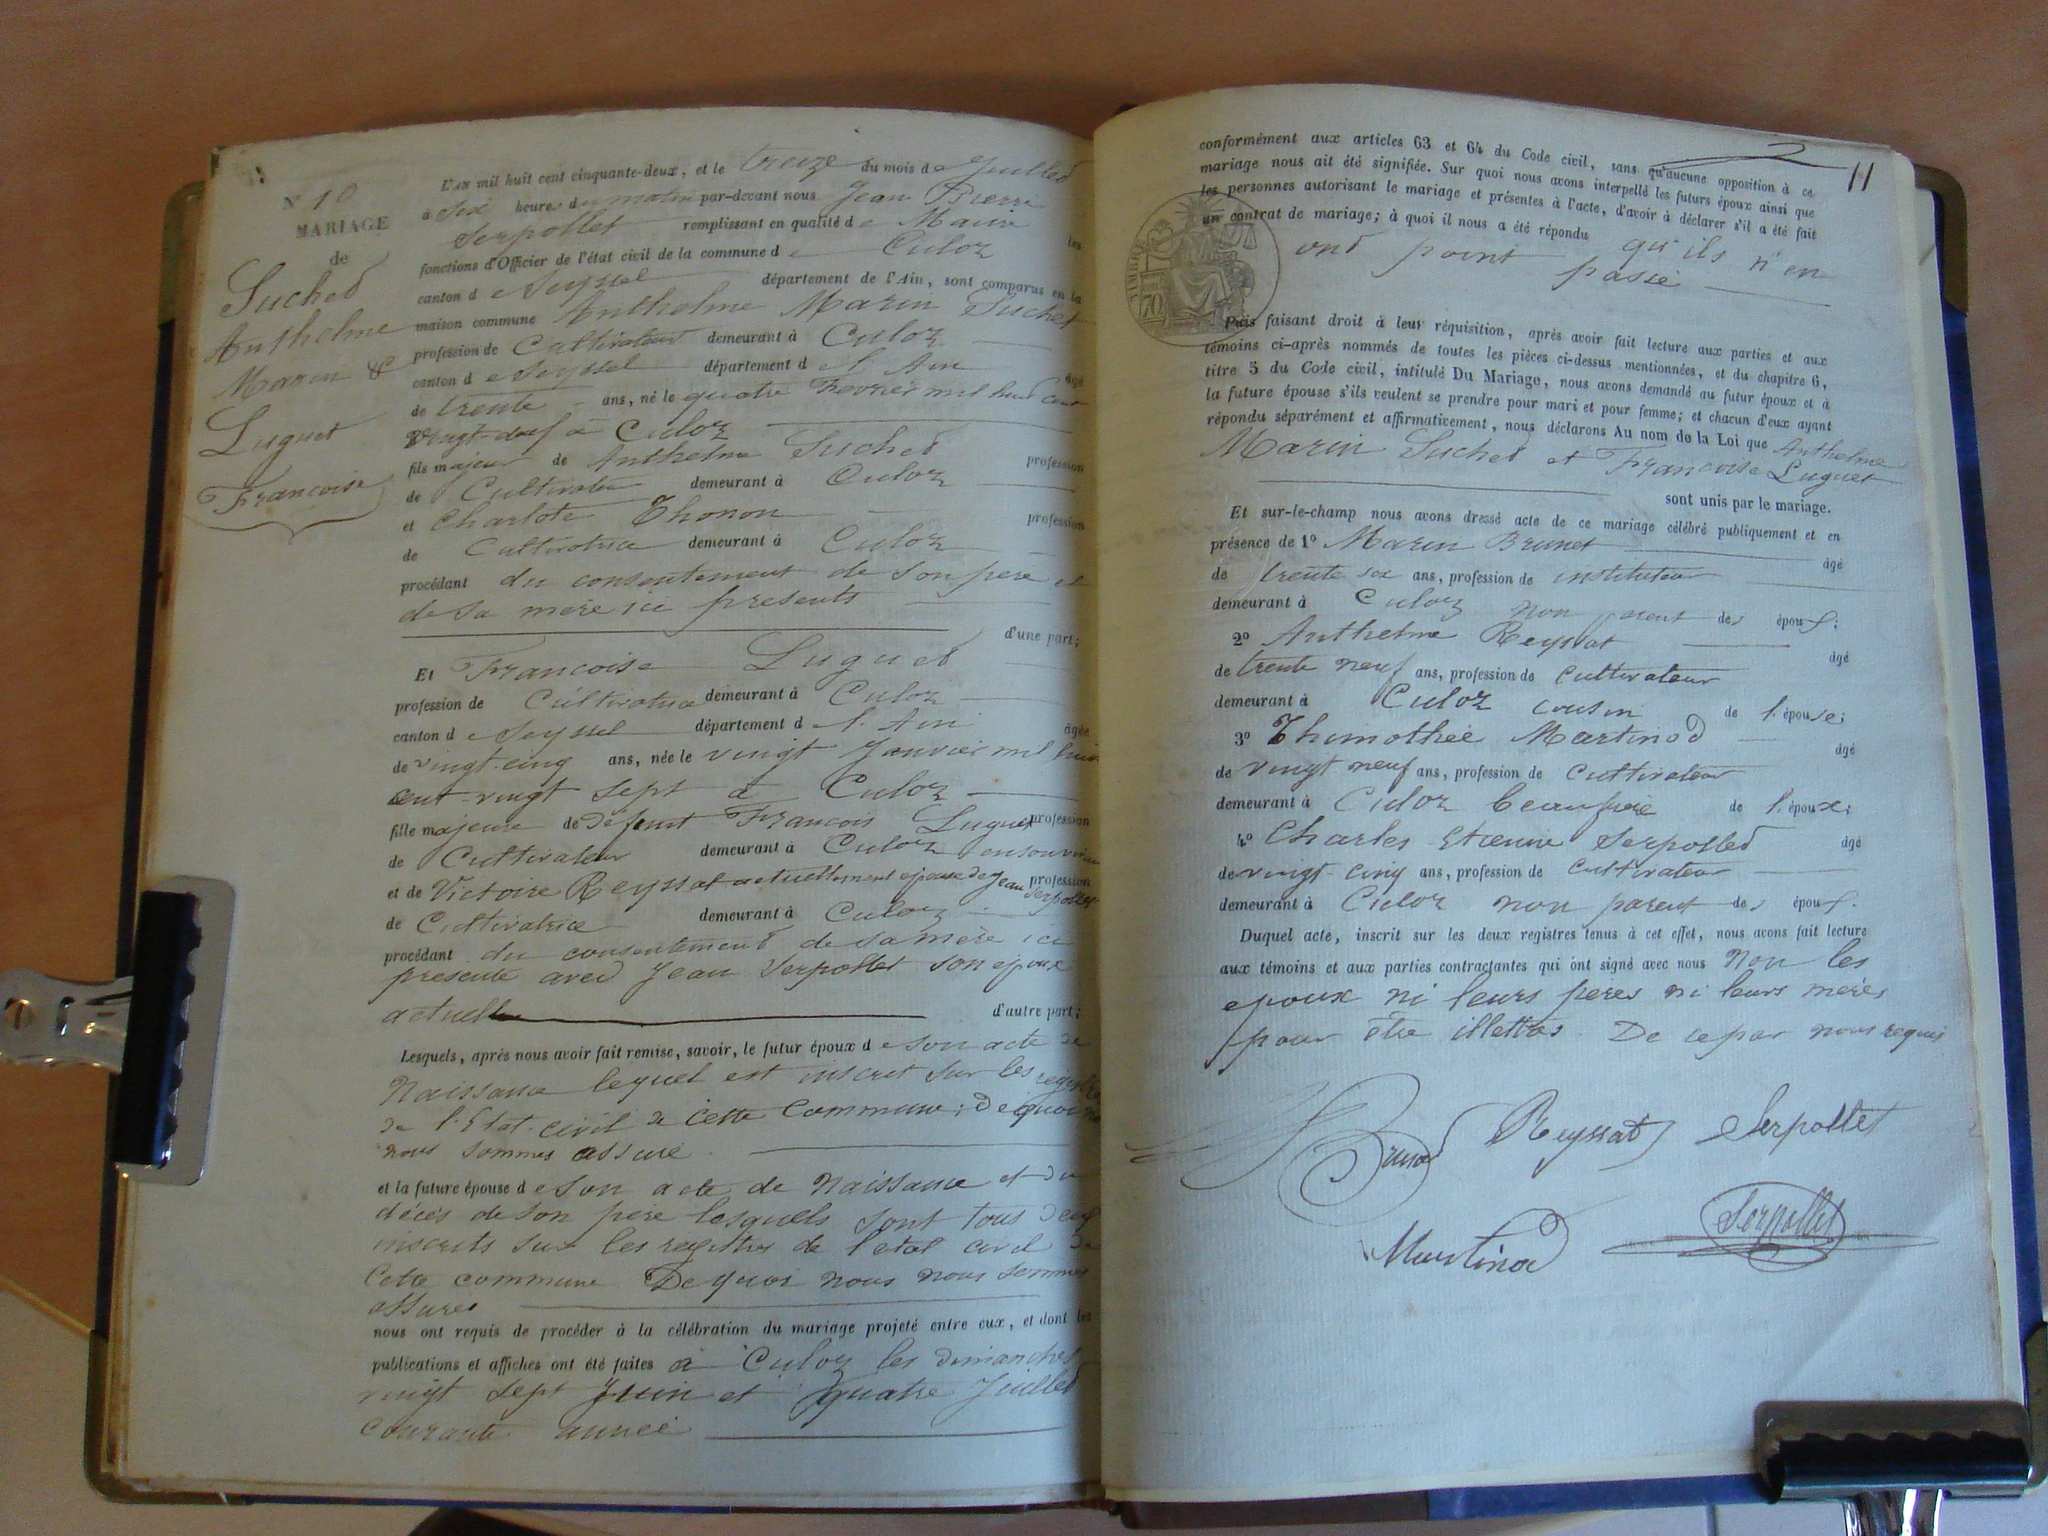 N° 10
MARIAGE
de
Suchet
Anthelme
Marin &
Luguet
Francoise
L'AN mil huit cent cinquante-deux, et le treize du mois de Juillet
à Six heures du matin par-devant nous Jean Pierre
Serpollet remplissant en qualité de Maire les
fonctions d'Officier de l'état civil de la commune de Culoz
canton de Seyssel département de l'Ain, sont comparus en la
maison commune Anthelme Marin Suchet
profession de Cultivateur demeurant à Culoz
canton de Seyssel département d l'Ain âgé
de trente ans, né le quatre Fevrier mil huit Cent
Vingt-deux à Culoz
fils majeur de Anthelme Suchet profession
de Cultivateur demeurant à Culoz
et Charlote Thonon profession
de Cultivatrice demeurant à Culoz
procédant du consentement de Son pere et
de sa mère ici presents
d'une part;
Et Francoise Luguet
profession de Cultivatrice demeurant à Culoz
canton de Seyssel département d l'Ain âgée
de vingt-cinq ans, née le vingt Janvier mil huit
cent-vingt sept à Culoz
fille majeure de defunt Francois Luguet profession
de Cultivateur demeurant à Culoz en son vivant
et de Victoire Reyssat actuellement epouse de Jean Serpollet profession
de Cultivatrice demeurant à Culoz
procédant du consentement de sa mère ici
presente avec Jean Serpollet son epoux
actuel d'autre part;
Lesquels, après nous avoir fait remise, savoir, le futur époux de son acte de
Naissance lequel est inscrit sur les registres
de l'Etat civil de cette Commune; de quoi nous
nous sommes assuré
et la future épouse de son acte de Naissance et du
décès de son père lesquels sont tous deux
inscrits sur les registres de l'etat civil de
Cete commune De quoi nous nous sommes
assures
nous ont requis de procéder à la célébration du mariage projeté entre eux, et dont les
publications et affiches ont été faites à Culoz les dimanches
vingt sept Juin et quatre Juillet
courante année
2
11
conformément aux articles 63 et 64 du Code civil, sans qu'aucune opposition à ce
mariage nous ait été signifiée. Sur quoi nous avons interpellé les futurs époux ainsi que
les personnes autorisant le mariage et présentes à l'acte, d'avoir à déclarer s'il a été fait
un contrat de mariage; à quoi il nous a été répondu qu'ils n'en
ont point passé
TIMBRE
70
Puis faisant droit à leur réquisition, après avoir fait lecture aux parties et aux
témoins ci-après nommés de toutes les pièces ci-dessus mentionnées, et du chapitre 6,
titre 5 du Code civil, intitulé Du Mariage, nous avons demandé au futur époux et à
la future épouse s'ils veulent se prendre pour mari et pour femme; et chacun d'eux ayant
répondu séparément et affirmativement, nous déclarons Au nom de la Loi que Anthelme
Marin Suchet et Francoise Luguet
sont unis par le mariage.
Et sur-le-champ nous avons dressé acte de ce mariage célébré publiquement et en
présence de 1° Marin Brunet âgé
de trente six ans, profession de instituteur
demeurant à Culoz non parent des époux;
2° Anthelme Reyssat âgé
de trente neuf ans, profession de Cultivateur
demeurant à Culoz cousin de l'épouse;
3° Thimothée Martinod âgé
de vingt neuf ans, profession de Cultivateur
demeurant à Culoz beaufrère de l'époux;
4° Charles Etienne Serpollet âgé
de vingt-cinq ans, profession de Cultivateur
demeurant à Culoz non parent des époux.
Duquel acte, inscrit sur les deux registres tenus à cet effet, nous avons fait lecture
aux témoins et aux parties contractantes qui ont signé avec nous Non les
epoux ni leurs peres ni leurs meres
pour être illettrés. De ce par nous requis
Brunet Reyssat Serpollet
Martinod Serpollet